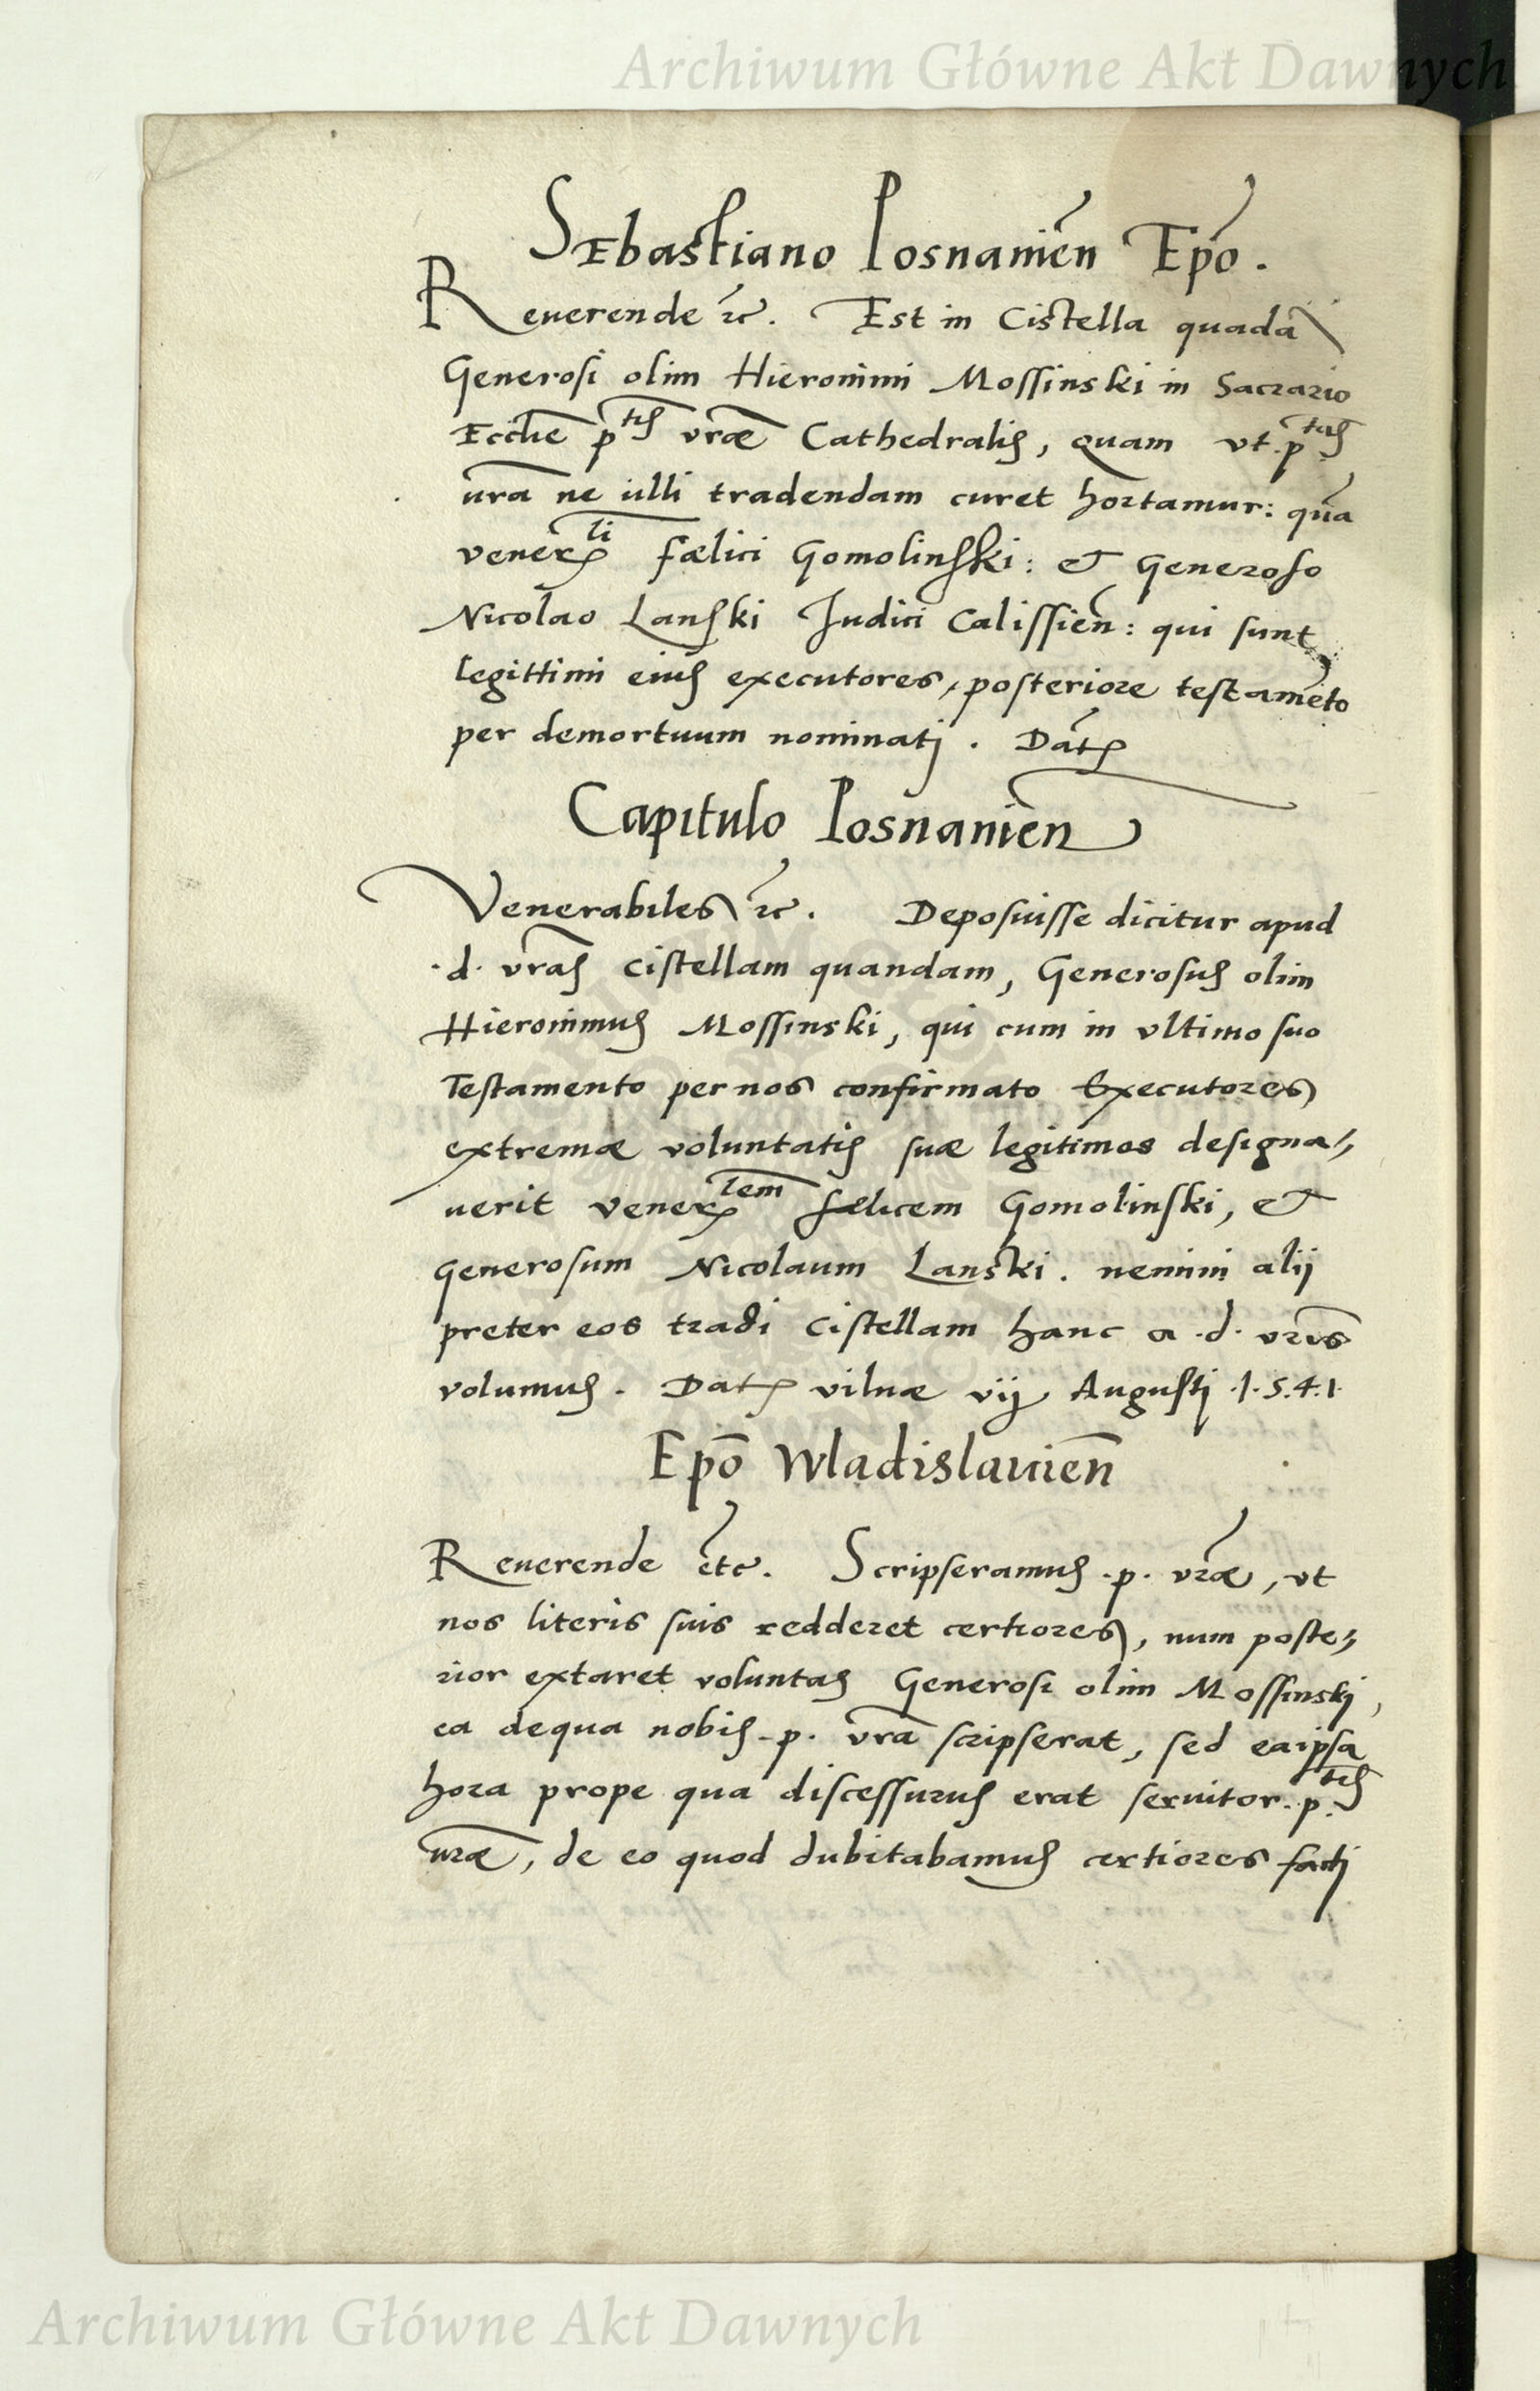 Archiwum Główne Akt Dawnych
Sebastiano Posnanien̄ Ep̄o.
Reuerende ꝛc. Est in Cistella quadā
Generosi olim Hieronimi Mossinski in Sacrario
Eccl̄ie p^tis vr̄æ Cathedralis, quam vt p^tas
vr̄a ne ulli tradendam curet hortamur: quā
vener^li fælici Gomolinski: et Generoso
Nicolao Lanski Judici Calissien̄: qui sunt
legittimi eius executores, posteriore testamēto
per demortuum nominati. Dat̄
Capitulo Posnanien̄
Venerabiles ꝛc. Deposuisse dicitur apud
.d. vr̄as cistellam quandam, Generosus olim
Hieronimus Mossinski, qui cum in vltimo suo
Testamento per nos confirmato Executores
extremæ voluntatis suæ legitimos designa,,
uerit vener^lem fælicem Gomolinski, et
generosum Nicolaum Lanski. nemini alij
preter eos tradi cistellam hanc a .d. vr̄is
volumus. Dat̄ vilnæ vij Augusti .1.5.4.1.
Ep̄o Wladislauien̄
Reuerende etc. Scripseramus .p. vr̄æ, vt
nos literis suis redderet certiores, num poste,,
rior extaret voluntas Generosi olim Mossinski,
ea dequa nobis .p. vr̄a scripserat, sed eaipsa
hora prope qua discessurus erat seruitor .p.^tis
vr̄æ, de eo quod dubitabamus certiores facti
Archiwum Główne Akt Dawnych